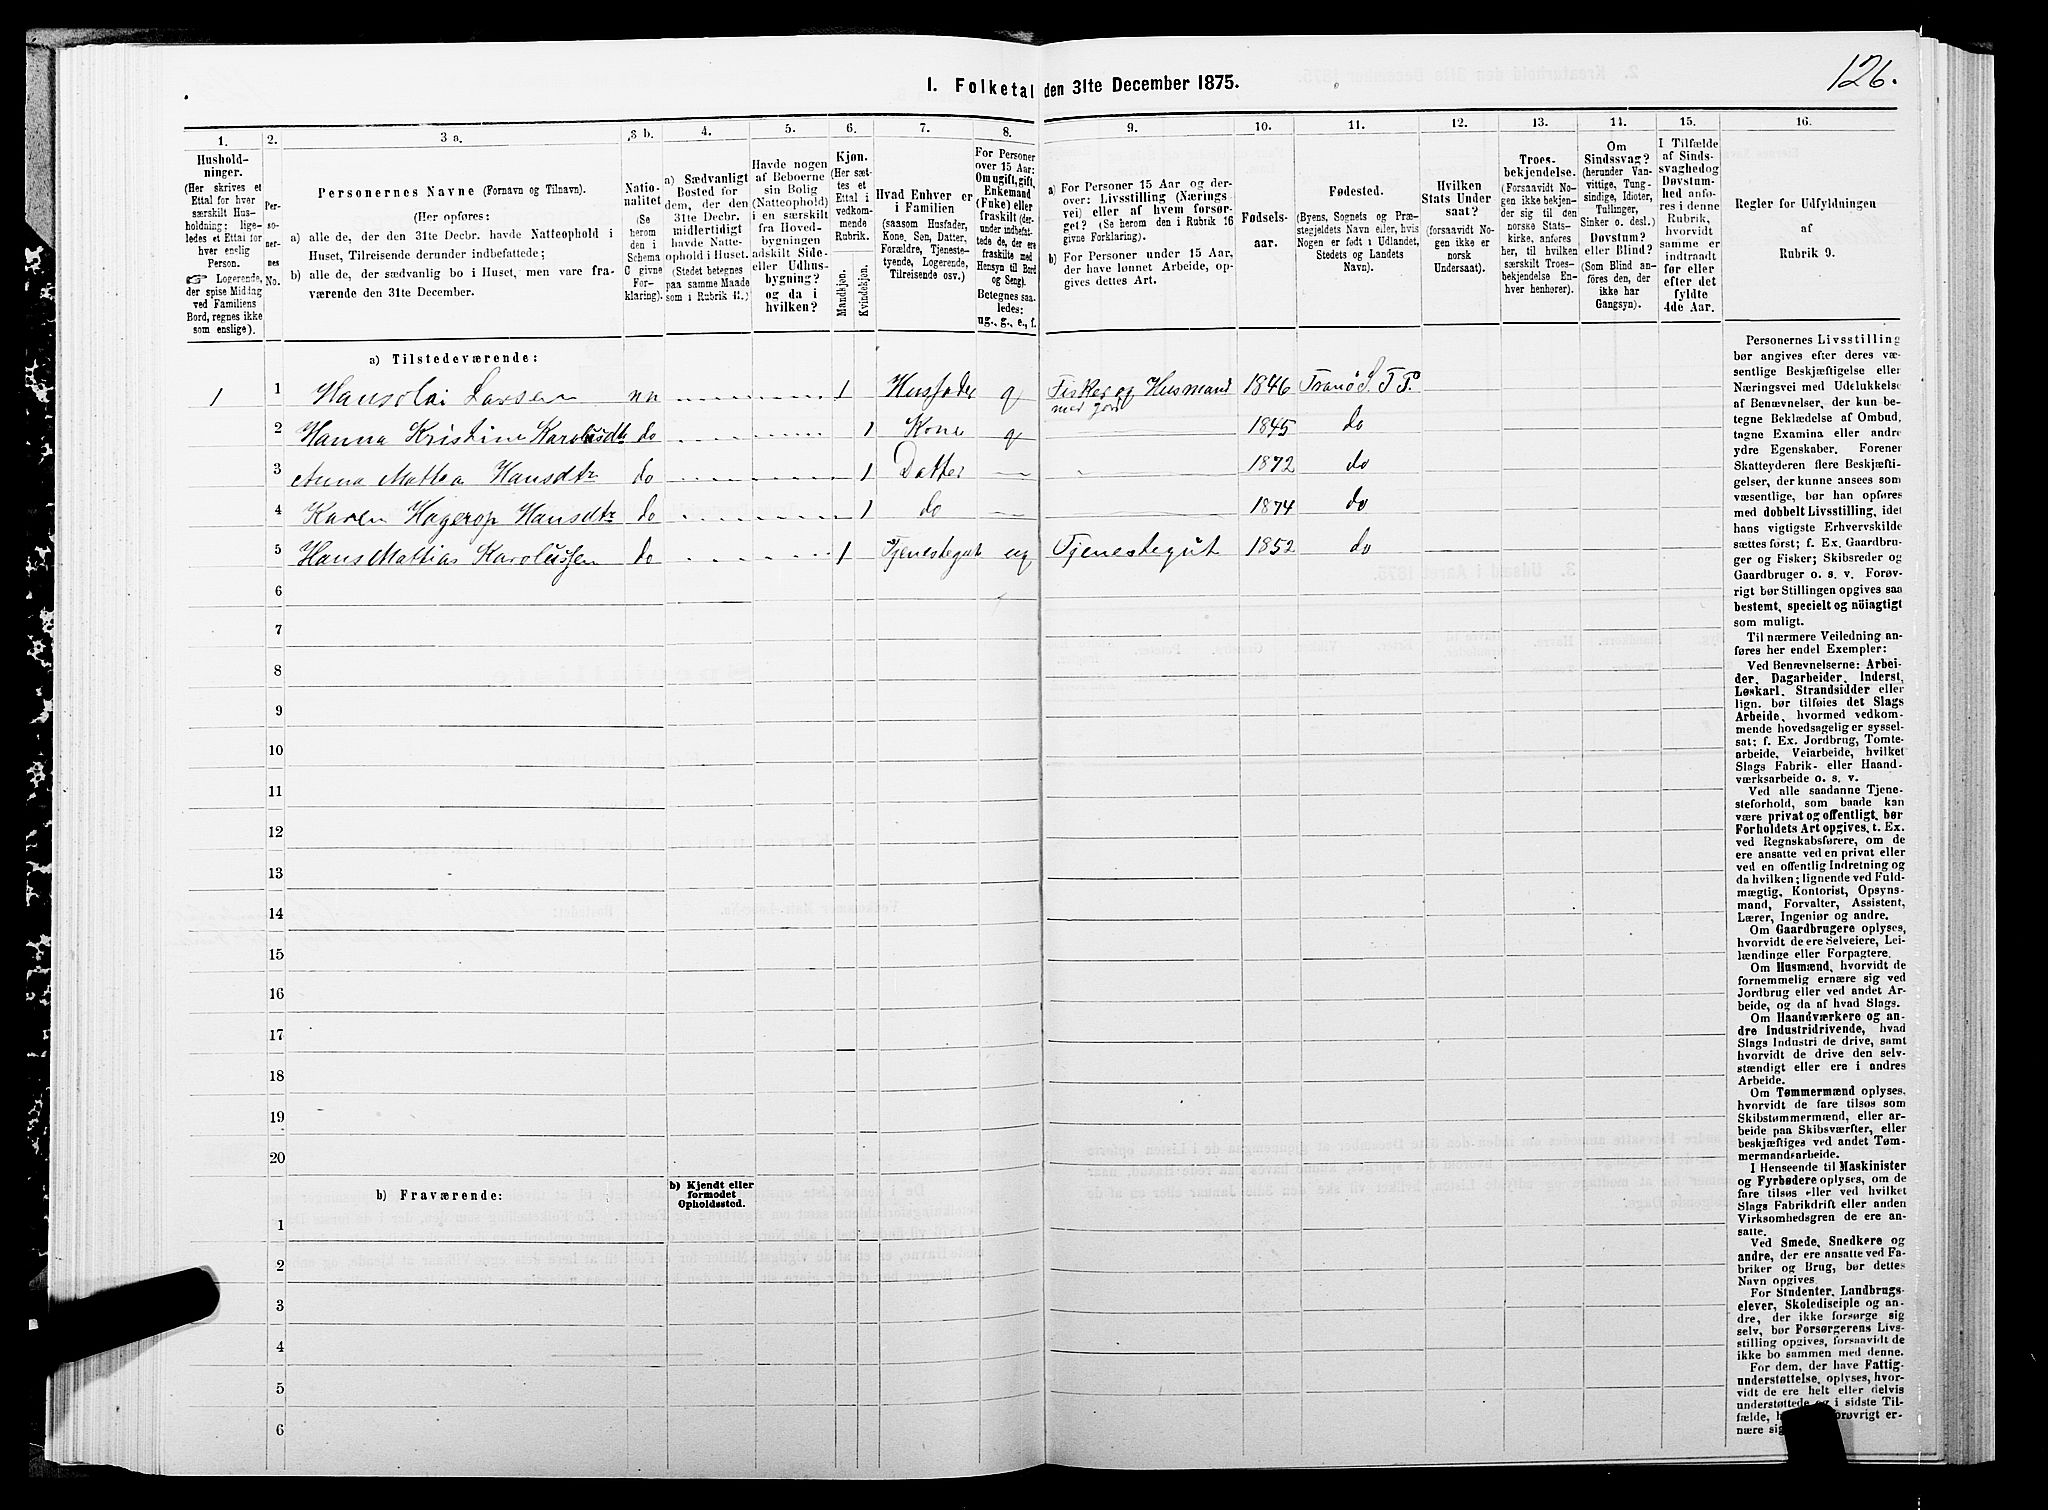 126.
I. Folketal den 31te December 1875.
1. 2. 3 a. 3 b. 4. 5. 6. 7. 8. 9. 10. 11. 12. 13. 14. 15. 16.
Hushold-
ninger.
(Her skrives et
Ettal for hver
særskilt Hus-
holdning; lige-
ledes et Ettal for
hver enslig
Person.
☞ Logerende,
der spise Middag
ved Familiens
Bord, regnes ikke
som enslige).
Per-
so-
ner-
nes
No.
Personernes Navne (Fornavn og Tilnavn).
(Her opføres:
a) alle de, der den 31te Decbr. havde Natteophold i
Huset, Tilreisende derunder indbefattede;
b) alle de, der sædvanlig bo i Huset, men vare fra-
værende den 31te December.
Natio-
nalitet
(Se
herom
den i
Schema
C givne
For-
klaring).
a) Sædvanligt
Bosted for
dem, der den
31te Decbr.
midlertidigt
havde Natte-
ophold i Huset.
(Stedet betegnes
paa samme Maade
som i Rubrik 11.)
Havde nogen
af Beboerne
sin Bolig
(Natteophold)
i en særskilt
fra Hoved-
bygningen
adskilt Side-
eller Udhus-
bygning?
og da i
hvilken?
Kjøn.
(Her sæt-
tes et
Ettal i
vedkom-
mende
Rubrik.
Mandkjøn.
Kvindekjøn.
Hvad Enhver er
i Familien
(saasom Husfader,
Kone, Søn, Datter,
Forældre, Tjeneste-
tyende, Logerende,
Tilreisende osv.)
For Personer
over 15 Aar:
Om ugift, gift,
Enkemand
(Enke) eller
fraskilt (der-
under indbefat-
tede de, der ere
fraskilte med
Hensyn til Bord
og Seng).
Betegnes saa-
ledes:
ug., g., e., f.
a) For Personer 15 Aar og der-
over: Livsstilling (Nærings-
vei) eller af hvem forsør-
get? (Se herom den i Rubrik 16
givne Forklaring).
b) For Personer under 15 Aar,
der have lønnet Arbeide, op-
gives dettes Art.
Fødsels-
aar.
Fødested.
(Byens, Sognets og Præ-
stegjeldets Navn eller, hvis
Nogen er født i Udlandet,
Stedets og Landets
Navn).
Hvilken
Stats Under
saat?
(forsaavidt No-
gen ikke er
norsk
Undersaat).
Troes-
bekjendelse.
(Forsaavidt No-
gen ikke bekjen-
der sig til den
norske Stats-
kirke, anføres
her, til hvilken
særskilt Troes-
bekjendelse En-
hver henhører).
Om
Sindssvag?
(herunder Van-
vittige, Tung-
sindige, Idioter,
Tullinger,
Sinker o. desl.)
Døvstum?
eller Blind?
(Som Blind an-
føres den, der
ikke har
Gangsyn).
I Tilfælde
af Sinds-
svaghed og
Døvstum-
hed anfø-
res i denne
Rubrik,
hvorvidt
samme er
indtraadt
før eller
efter det
fyldte
4de Aar.
Regler for Udfyldningen
af
Rubrik 9.
a) Tilstedeværende:
1 1 Hansolai Larsen nn 1 Husfader g Fisker og Husmand 1846 Tranø S. T P.
med Jord
2 Hanna Kristine Karolusdtr do 1 Kone g 1845 do
3 Anna Mattea Hansdtr do 1 Datter 1872 do
4 Karen Hagerop Hansdtr do 1 do 1874 do
5 Hans Mattias Karolussen do 1 Tjenestegut ug Tjenestegut 1852 do
6
7
8
9
10
11
12
13
14
15
16
17
18
19
20
b) Fraværende:
b) Kjendt eller
formodet
Opholdssted.
1
2
3
4
5
6
Personernes Livsstilling
bør angives efter deres væ-
sentlige Beskjæftigelse eller
Næringsvei med Udelukkelse
af Benævnelser, der kun be-
tegne Beklædelse af Ombud,
tagne Examina eller andre
ydre Egenskaber. Forener
Skatteyderen flere Beskjæfti-
gelser, der kunne ansees som
væsentlige, bør han opføres
med dobbelt Livsstilling, idet
hans vigtigste Erhvervskilde
sættes først; f. Ex. Gaardbru-
ger og Fisker; Skibsreder og
Gaardbruger o. s. v. Forøv-
rigt bør Stillingen opgives saa
bestemt, specielt og nöiagtigt
som muligt.
Til nærmere Veiledning an-
føres her endel Exempler:
Ved Benævnelserne: Arbei-
der, Dagarbeider, Inderst,
Løskarl, Strandsidder eller
lign. bør tilføies det Slags
Arbeide, hvormed vedkom-
mende hovedsagelig er syssel-
sat; f. Ex. Jordbrug, Tomte-
arbeide, Veiarbeide, hvilket
Slags Fabrik- eller Haand-
værksarbeide o. s. v.
Ved alle saadanne Tjene-
steforhold, som baade kan
være privat og offentligt, bør
Forholdets Art opgives, t. Ex.
ved Regnskabsførere, om de
ere ansatte ved en privat eller
ved en offentlig Indretning og
da hvilken; lignende ved Fuld-
mægtig, Kontorist, Opsyns-
mand, Forvalter, Assistent,
Lærer, Ingeniør og andre.
Om Gaardbrugere oplyses,
hvorvidt de ere Selveiere, Lei-
lændinge eller Forpagtere.
Om Husmænd, hvorvidt de
fornemmelig ernære sig ved
Jordbrug eller ved andet Ar-
beide, og da af hvad Slags.
Om Haandværkere og an-
dre Industridrivende, hvad
Slags Industri de drive, samt
hvorvidt de drive den selv-
stændigt eller ere i andres
Arbeide.
Om Tømmermænd oplyses,
hvorvidt de fare tilsøs som
Skibstømmermænd, eller ar-
beide paa Skibsværfter, eller
beskjæftiges ved andet Tøm-
mermandsarbeide.
I Henseende til Maskinister
og Fyrbødere oplyses, om de
fare tilsøs eller ved hvilket
Slags Fabrikdrift eller anden
Virksomhedsgren de ere an-
satte.
Ved Smede, Snedkere og
andre, der ere ansatte ved Fa-
briker og Brug, bør dettes
Navn opgives.
For Studenter, Landbrugs-
elever, Skoledisciple og an-
dre, der ikke forsørge sig
selv, bør Forsørgerens Livs-
stilling opgives, forsaavidt de
ikke bo sammen med denne.
For dem, der have Fattig-
understøttelse, oplyses, hvor-
vidt de ere helt eller delvis
understøttede og i sidste Til-
fælde, forøvrigt er-
nære sig